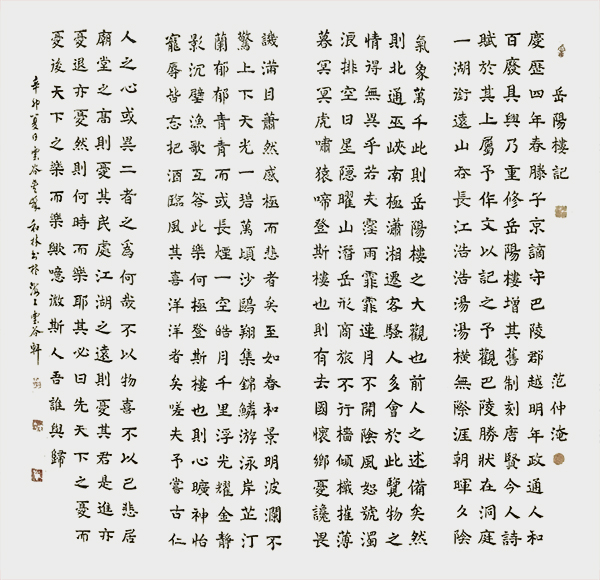 岳陽樓記 范仲淹
慶歷四年春滕子京謫守巴陵郡越明年政通人和
百廢具興乃重修岳陽樓增其舊制刻唐賢今人詩
賦於其上屬予作文以記之予觀巴陵勝狀在洞庭
一湖銜遠山吞長江浩浩湯湯橫無際涯朝暉夕陰
氣象萬千此則岳陽樓之大觀也前人之述備矣然
則北通巫峽南極瀟湘遷客騷人多會於此覽物之
情得無異乎若夫霪雨霏霏連月不開陰風怒號濁
浪排空日星隱曜山潛岳形商旅不行檣傾檝摧薄
暮冥冥虎嘯猿啼登斯樓也則有去國懷鄉憂讒畏
譏滿目蕭然感極而悲者矣至如春和景明波瀾不
驚上下天光一碧萬頃沙鷗翔集錦鱗游泳岸芷汀
蘭郁郁青青而或長煙一空皓月千里浮光耀金靜
影沉璧漁歌互答此樂何極登斯樓也則心曠神怡
寵辱皆忘把酒臨風其喜洋洋者矣嗟夫予嘗古仁
人之心或異二者之為何哉不以物喜不以己悲居
廟堂之高則憂其民處江湖之遠則憂其君是進亦
憂退亦憂然則何時而樂耶其必曰先天下之憂而
憂後天下之樂而樂歟噫微斯人吾誰與歸
辛卯夏月雲谷和林書於海上雲谷軒